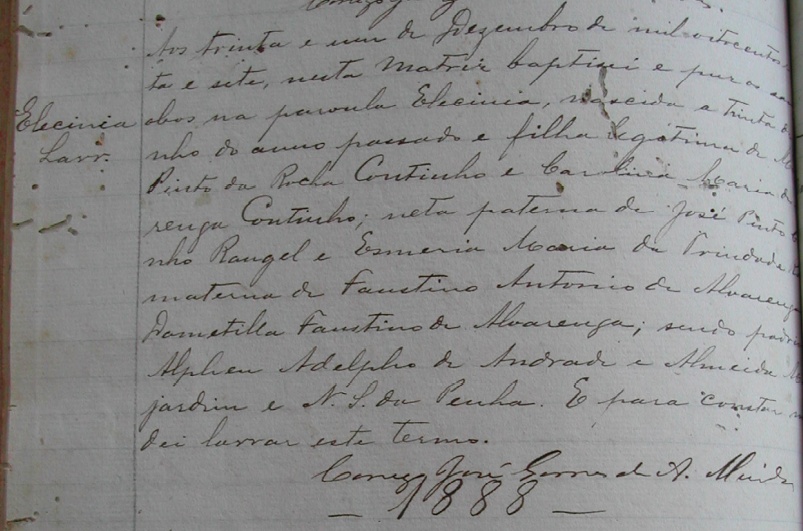 Aos trinta e um de Dezembro de mil oitocentos
ta e sete, nesta Matriz baptisei e puz os san
Elecinia
Lavr.
obos na parvula Elecinia, nascida a trinta de
nho do anno passado e filha legitima de M
Pinto da Rocha Coutinho e Carolina Maria de
renga Coutinho; neta paterna de José Pinto
nho Rangel e Esmeria Maria da Trindade
materna de Faustino Antonio de Alvarenga
Dometilla Faustino de Alvarenga; sendo padri
Alpheu Adelpho de Andrade e Almeida
jardim e N. S. da Penha. E para constar
dei lavrar este termo.
Conego José Gomes de A. Meirde
— 1888 —